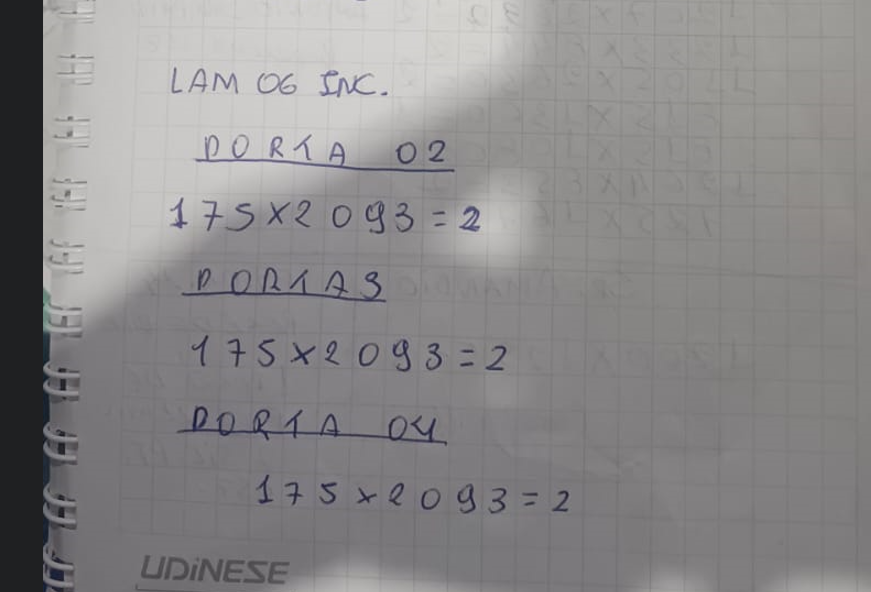 LAM 06 INC.
PORTA 02
175x2093=2
PORTA 3
175x2093=2
PORTA 04
175x2093=2
UDiNESE